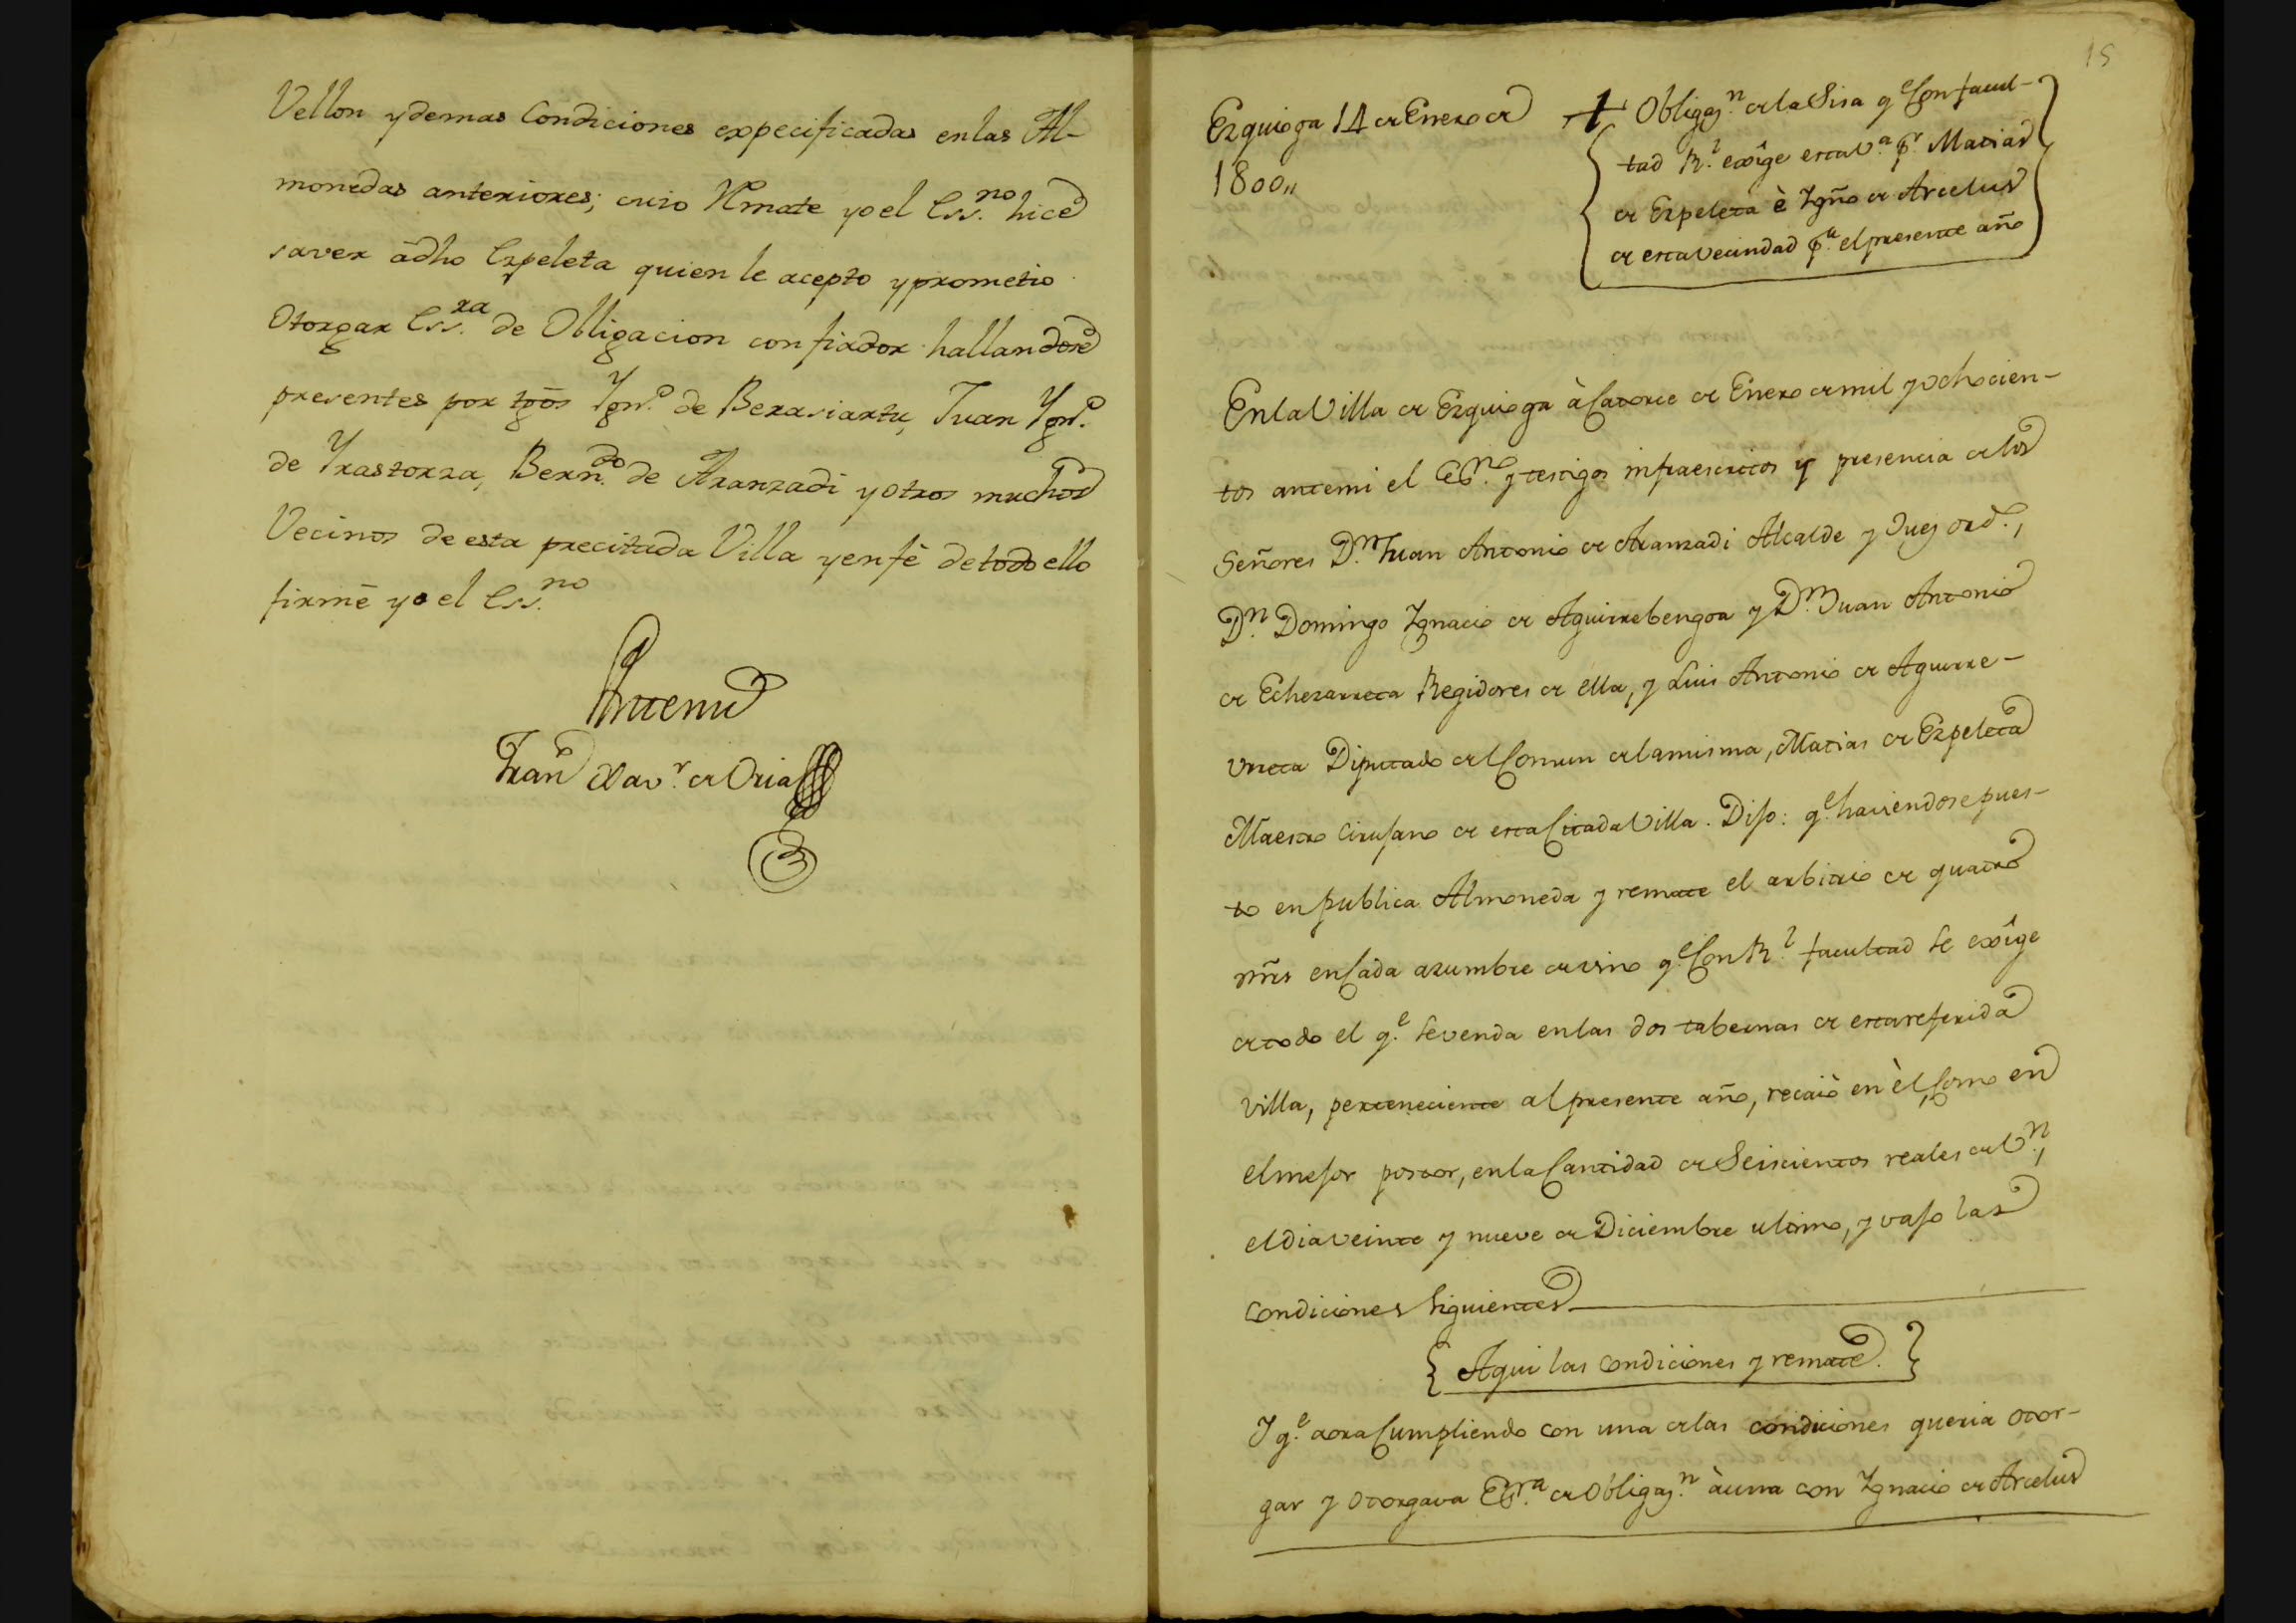 Vellon y demas Condiciones expecificadas en las Al-
monedas anteriores; cuio Rmate yo el Ess.no hice
saver â dho Ezpeleta quien le acepto y prometio
Otorgar Ess.ra de Obligacion con fiador hallandose
presentes por tgōs Ygn.o de Berasiartu, Juan Ygn.o
de Yrastorza, Bern.do de Aranzadi y otros muchos
Vecinos de esta precitada Villa y en fè de todo ello
firmè yo el Ess.no
Antemi
Fran.co Xav.r de Oria
15
Ezquioga 14 de Enero de
1800,,
+ Obligaz.n de la Sisa q.e Con facul-
tad R.l exîge esta V.a p.r Matias
de Ezpeleta è Ygño de Arcelus
de esta Vecindad p.a el presente año
En la Villa de Ezquioga à Catorce de Enero de mil y ochocien-
tos antemi el Es.no y testigos infraescritos y presencia de los
Señores D.n Juan Antonio de Aranzadi Alcalde y Juez ord.o,
D.n Domingo Ygnacio de Aguirrebengoa y D.n Juan Antonio
de Echezarreta Regidores de ella, y Luis Antonio de Aguirre-
urreta Diputado del Comun de la misma, Matias de Ezpeleta
Maestro Cirujano de esta Citada Villa. Dijo: q.e haviendose pues-
to en publica Almoneda y remate el arbitrio de quatro
mr̃s en Cada azumbre de vino q.e Con R.l facultad se exîge
de todo el q.e se venda en las dos tabernas de esta referida
Villa, perteneciente al presente año, recaiò en èl, Como en
el mejor postor, en la Cantidad de Seiscientos reales de V.n,
el dia veinte y nueve de Diciembre ultimo, y vajo las
Condiciones siguientes
Aqui las Condiciones y remate.
Y q.e aora Cumpliendo con una de las condiciones queria otor-
gar y otorgava Es.ra de Obligaz.n à una con Ygnacio de Arcelus